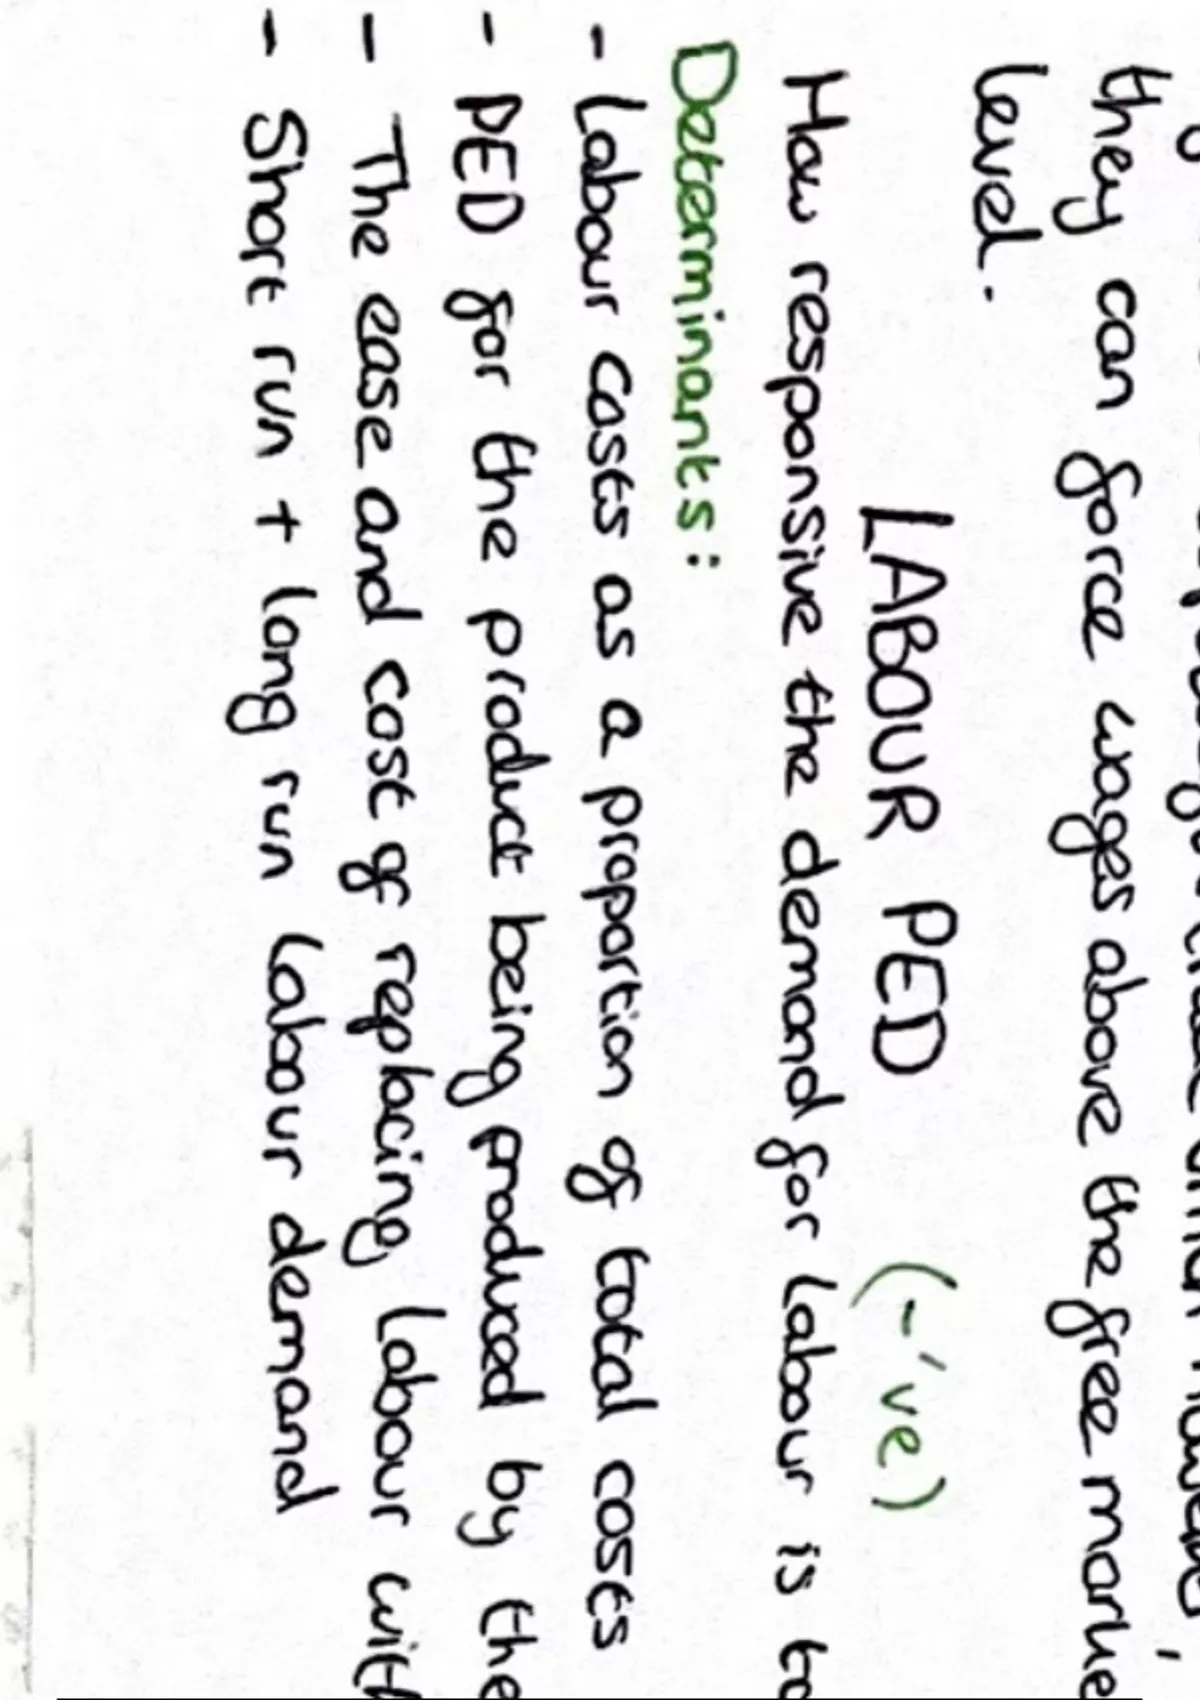 they can force wages above the free marke
level.
LABOUR PED (-'ve)
How responsive the demand for labour is to
Determinants:
- Labour costs as a proportion of total costs
- PED for the product being produced by the
- The ease and cost of replacing labour with
- Short run + long run labour demand